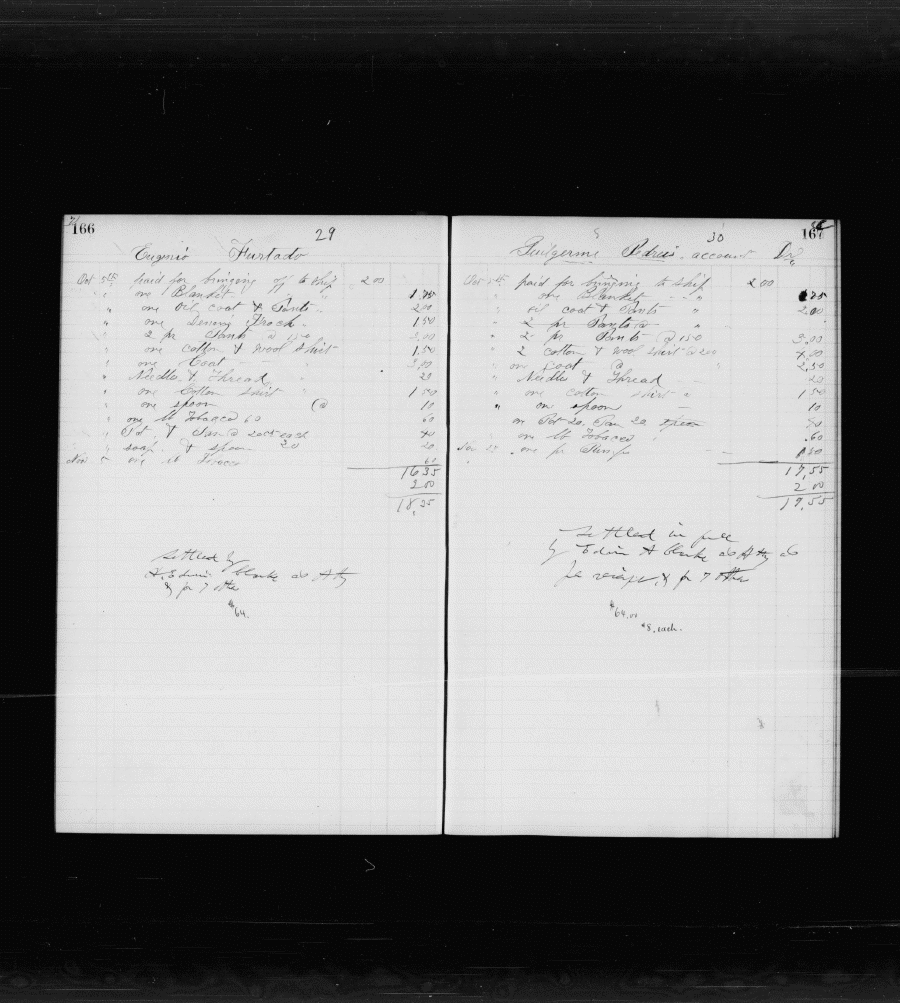 166
29
Eugenio Furtado
Oct 5th paid for bringing off to ship 2.00
" one Blanket " 1.75
" one Oil coat & Pants " 2.00
" one Denim Frock " 1.50
" 2 pr Pants @ 1.50 3.00
" one cotton & wool shirt 1.50
" one Coat " 3.00
" Needles & Thread " 20
" one Cotton shirt " 1.50
" one spoon @ 10
" one lb Tobacco 60 60
" Pot & Pan @ 20cts each 40
" soap & spoon 20 20
Nov 5 one lb Tobacco 60
16.35
2.00
18.35
settled by
Edwin Clarke as Atty
& for 7 other
$64.
167
30
Guilgerme Pedris account Dr
Oct 5th paid for bringing to ship 2.00
" one Blanket " " 1.75
" oil coat & Pants " 2.00
" 2 pr Pants @
" 2 pr Pants @ 1.50 3.00
" 2 cotton & wool shirt @ 2.00 4.00
" one coat @ " 2.50
" Needles & Thread 20
" one cotton shirt " 1.50
" one spoon — 10
one Pot 20. Pan 20
" one lb Tobacco " .60
one pr
17.55
2.00
19.55
settled in full
by Edwin A Clarke as Atty
& for 7 other
$64.00
$8. each.